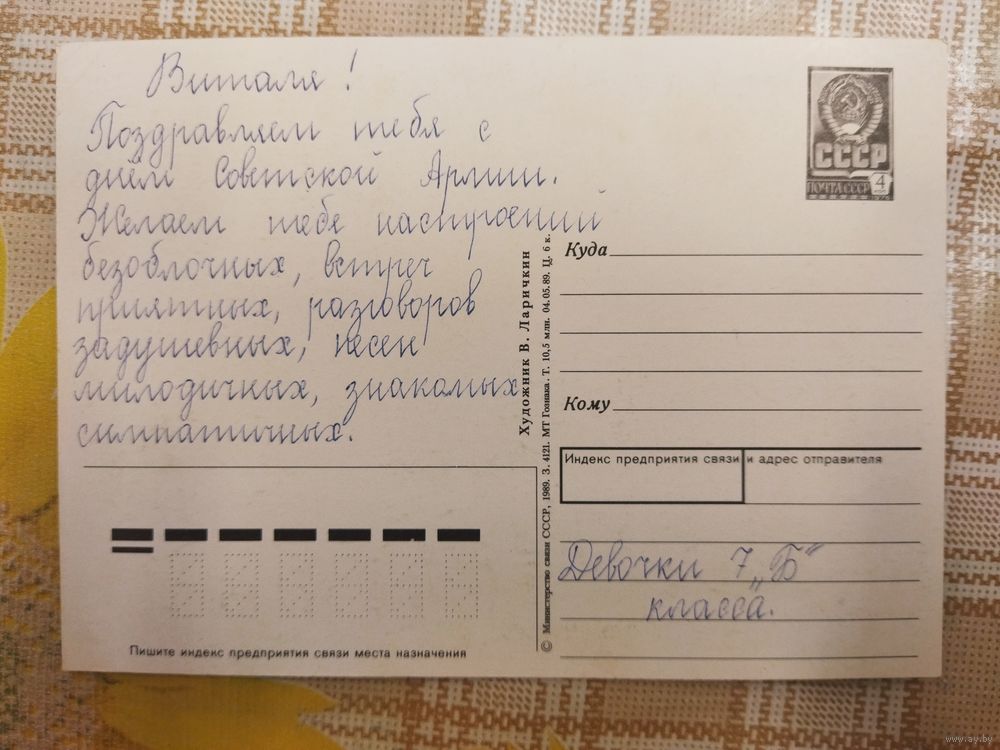 Виталя!
Поздравляем тебя с
днём Советской Армии.
Желаем тебе настроений
безоблачных, встреч
приятных, разговоров
задушевных, песен
милодичных, знакомых
симпатичных.
СССР
ПОЧТА СССР 4
Куда
Кому
Индекс предприятия связи и адрес отправителя
Девочки 7 „Б“
класса.
Художник В. Ларичкин
© Министерство связи СССР, 1989. З. 4121. МТ Гознака. Т. 10,5 млн. 04.05.89. Ц. 6 к.
Пишите индекс предприятия связи места назначения
www.ay.by